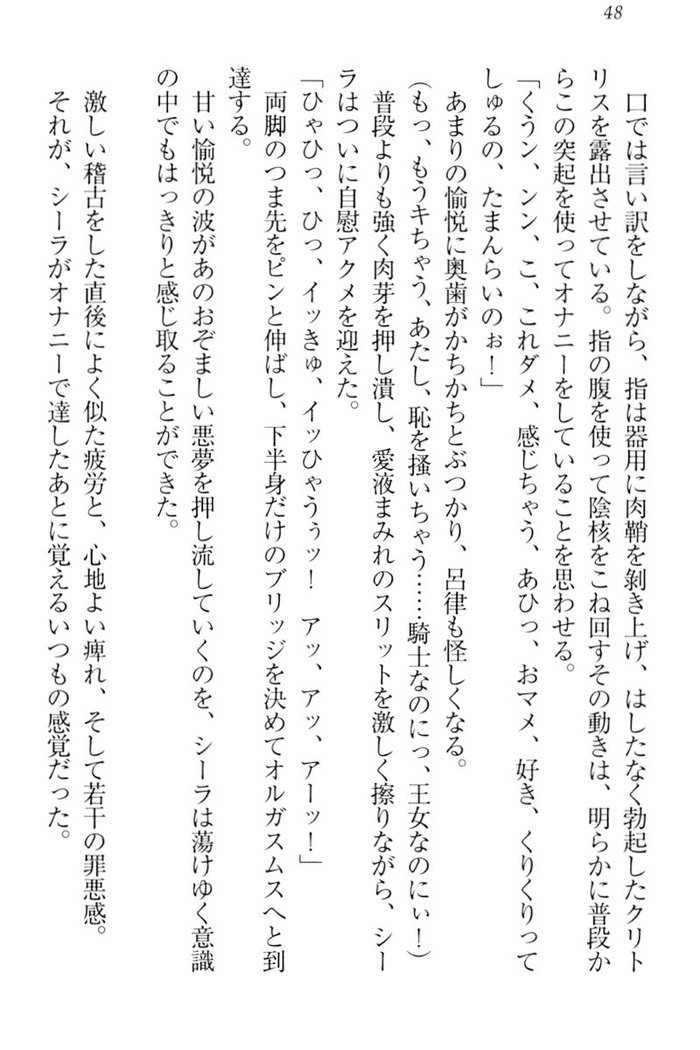 48
口では言い訳をしながら、指は器用に肉鞘を剝き上げ、はしたなく勃起したクリト
リスを露出させている。指の腹を使って陰核をこね回すその動きは、明らかに普段か
らこの突起を使ってオナニーをしていることを思わせる。
「くうン、ンン、こ、これダメ、感じちゃう、あひっ、おマメ、好き、くりくりって
しゅるの、たまんらいのぉ！」
あまりの愉悦に奥歯がかちかちとぶつかり、呂律も怪しくなる。
(もっ、もうキちゃう、あたし、恥を搔いちゃう……騎士なのにっ、王女なのにぃ！)
普段よりも強く肉芽を押し潰し、愛液まみれのスリットを激しく擦りながら、シー
ラはついに自慰アクメを迎えた。
「ひゃひっ、ひっ、イッきゅ、イッひゃうぅッ！　アッ、アッ、アーッ！」
両脚のつま先をピンと伸ばし、下半身だけのブリッジを決めてオルガスムスへと到
達する。
甘い愉悦の波があのおぞましい悪夢を押し流していくのを、シーラは蕩けゆく意識
の中でもはっきりと感じ取ることができた。
激しい稽古をした直後によく似た疲労と、心地よい痺れ、そして若干の罪悪感。
それが、シーラがオナニーで達したあとに覚えるいつもの感覚だった。